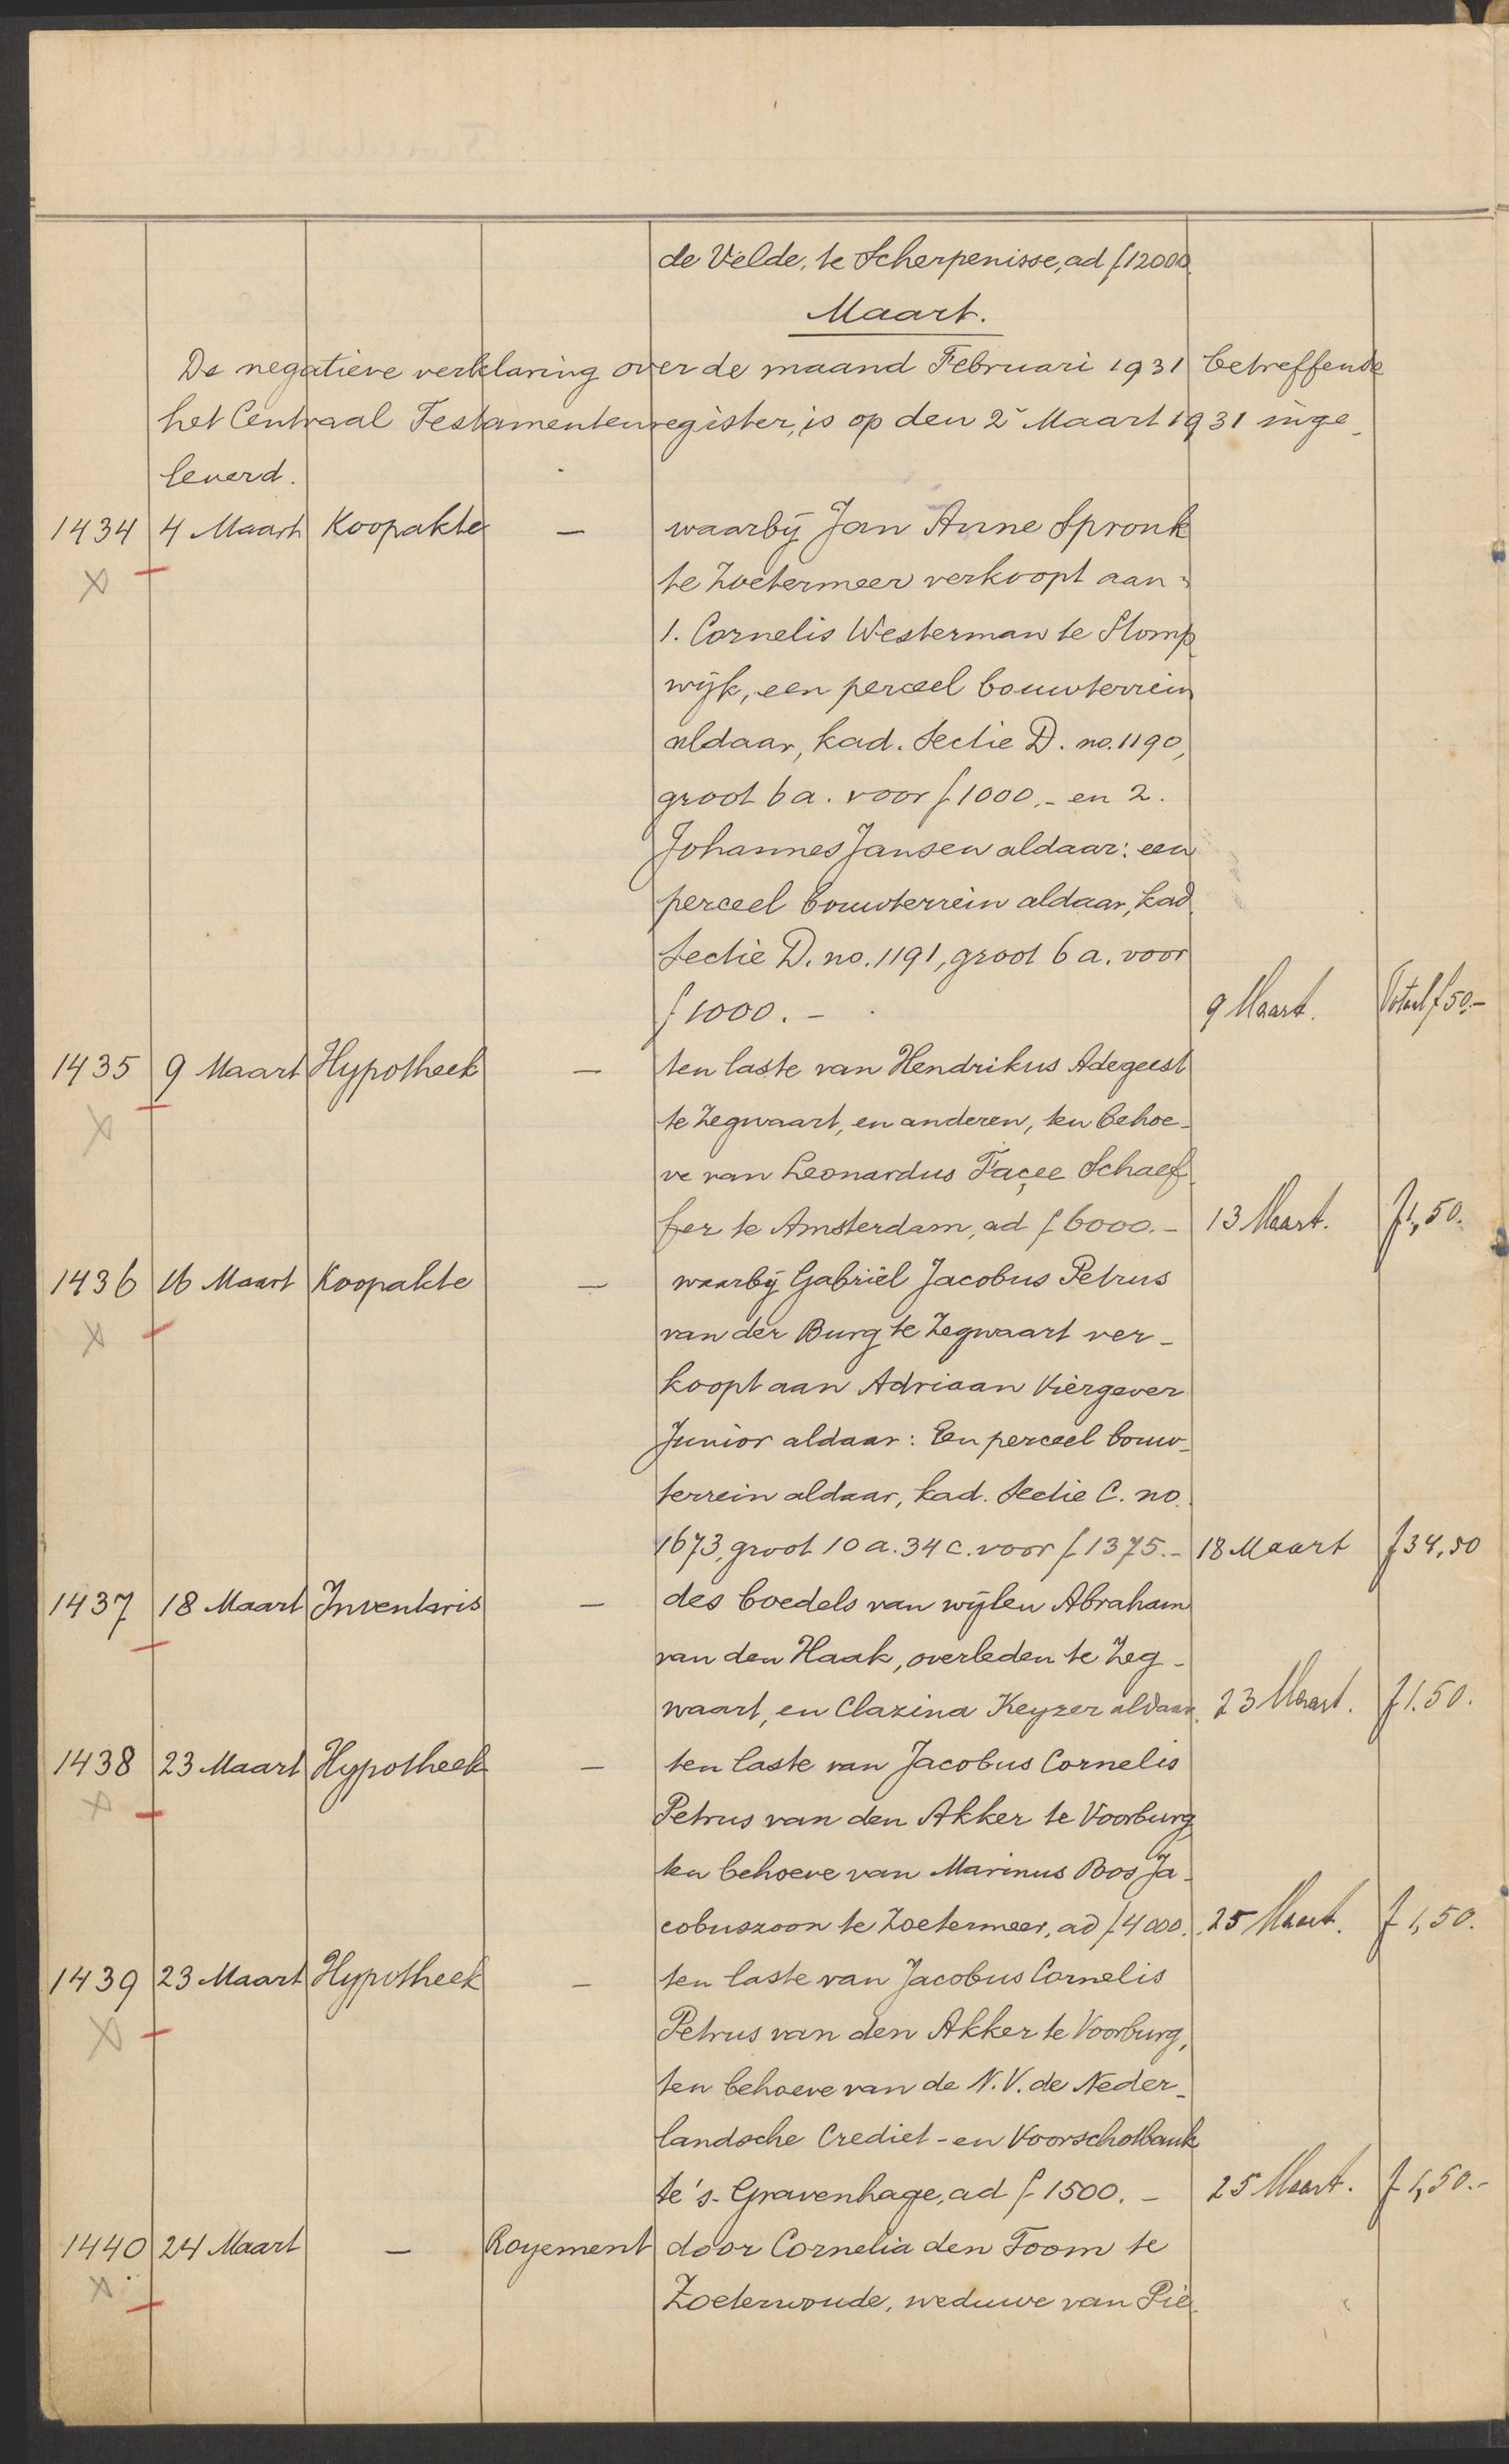 de Velde, te Scherpenisse, ad f 12000.
Maart.
De negatieve verklaring over de maand Februari 1931 betreffende
het Centraal Testamentenregister, is op den 2 Maart 1931 inge-
leverd.
1434 4 Maart Koopakte — waarbij Jan Anne Spronk
te Zoetermeer verkoopt aan:
1. Cornelis Westerman te Stomp-
wijk, een perceel bouwterrein
aldaar, kad. Sectie D. no. 1190,
groot 6 a. voor f 1000.- en 2.
Johannes Jansen aldaar: een
perceel bouwterrein aldaar, kad.
Sectie D. no. 1191, groot 6 a. voor
f 1000.- 9 Maart. Totaal f 50.-
1435 9 Maart Hypotheek — ten laste van Hendrikus Adegeest
te Zegwaart, en anderen, ten behoe-
ve van Leonardus Façee Schaef-
fer te Amsterdam, ad f 6000.- 13 Maart. f 1,50.
1436 16 Maart Koopakte — waarbij Gabriël Jacobus Petrus
van der Burg te Zegwaart ver-
koopt aan Adriaan Viergever
Junior aldaar: Een perceel bouw-
terrein aldaar, kad. Sectie C. no.
1673, groot 10 a. 34 c. voor f 1375.- 18 Maart f 34,50
1437 18 Maart Inventaris — des boedels van wijlen Abraham
van den Haak, overleden te Zeg-
waart, en Clazina Keyzer aldaar. 23 Maart. f 1.50.
1438 23 Maart Hypotheek — ten laste van Jacobus Cornelis
Petrus van den Akker te Voorburg
ten behoeve van Marinus Bos Ja-
cobuszoon te Zoetermeer, ad f 4000. 25 Maart. f 1,50.
1439 23 Maart Hypotheek — ten laste van Jacobus Cornelis
Petrus van den Akker te Voorburg,
ten behoeve van de N.V. de Neder-
landsche Crediet- en Voorschotbank
te 's-Gravenhage, ad f 1500.- 25 Maart. f 1,50.-
1440 24 Maart — Royement door Cornelia den Toom te
Zoeterwoude, weduwe van Pie-